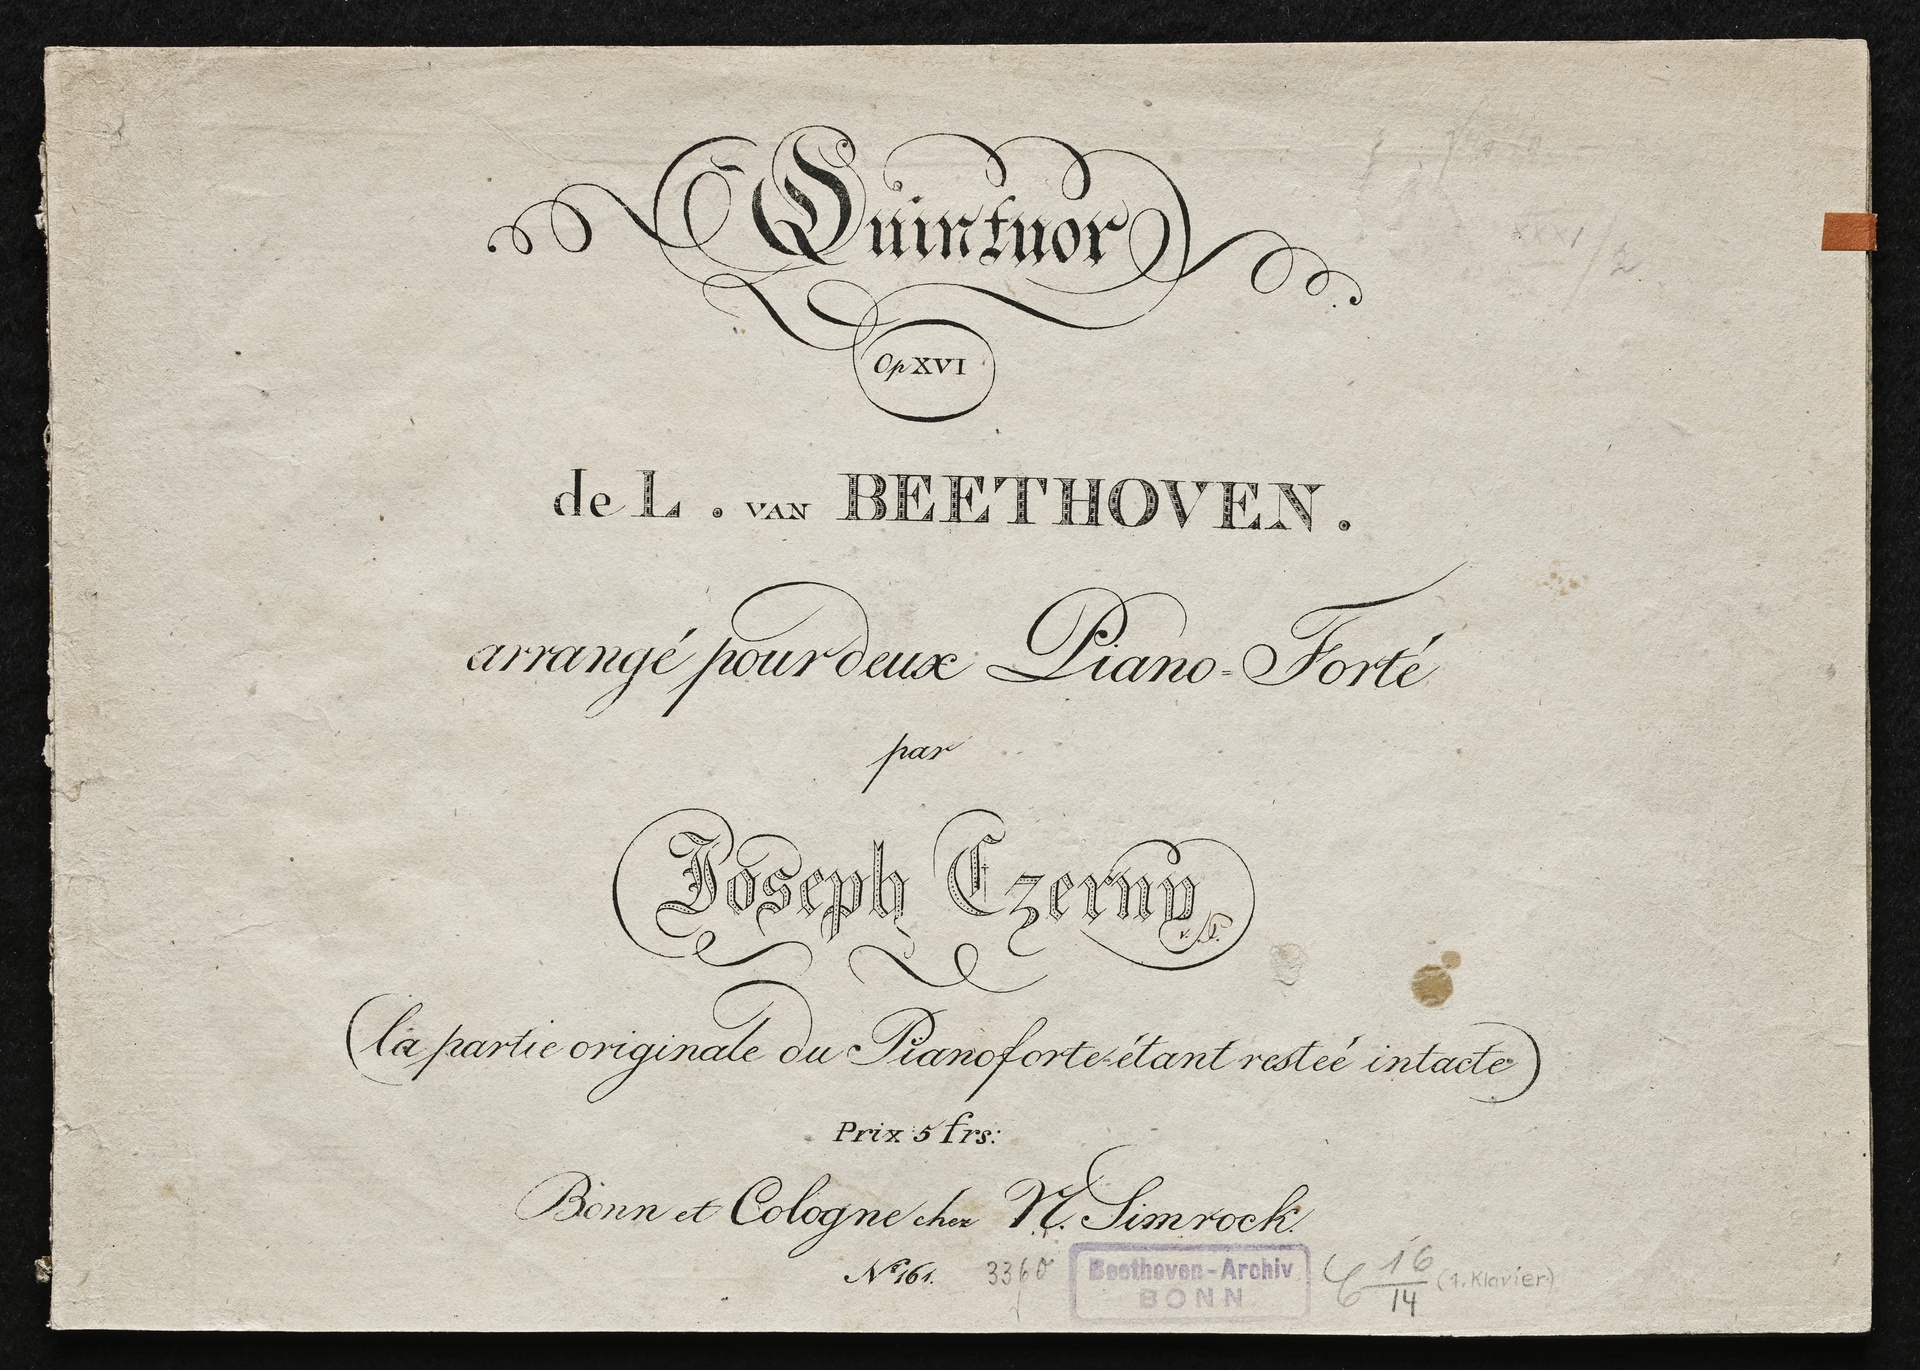 Quintuor
Op XVI
de L. VAN BEETHOVEN.
arrangé pour deux Piano-Forté
par
Joseph Czerny
(la partie originale du Pianoforte étant resteé intacte)
Prix 5 frs:
Bonn et Cologne chez N. Simrock.
Nº 161. 3360 Beethoven-Archiv
BONN
C 16/14 (1. Klavier)
XXXI/2